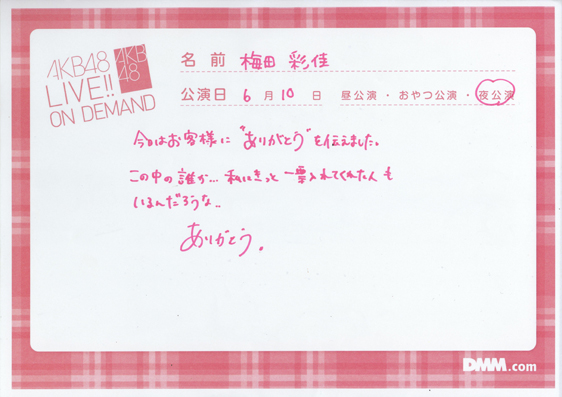 AKB48
LIVE!!
ON DEMAND
AKB
48
名前 梅田 彩佳
公演日 6月10日 昼公演・おやつ公演・夜公演
今日はお客様に"ありがとう"を伝えました。
この中の誰か… 私にきっと 一票入れてくれた人も
いるんだろうな..
ありがとう。
DMM.com